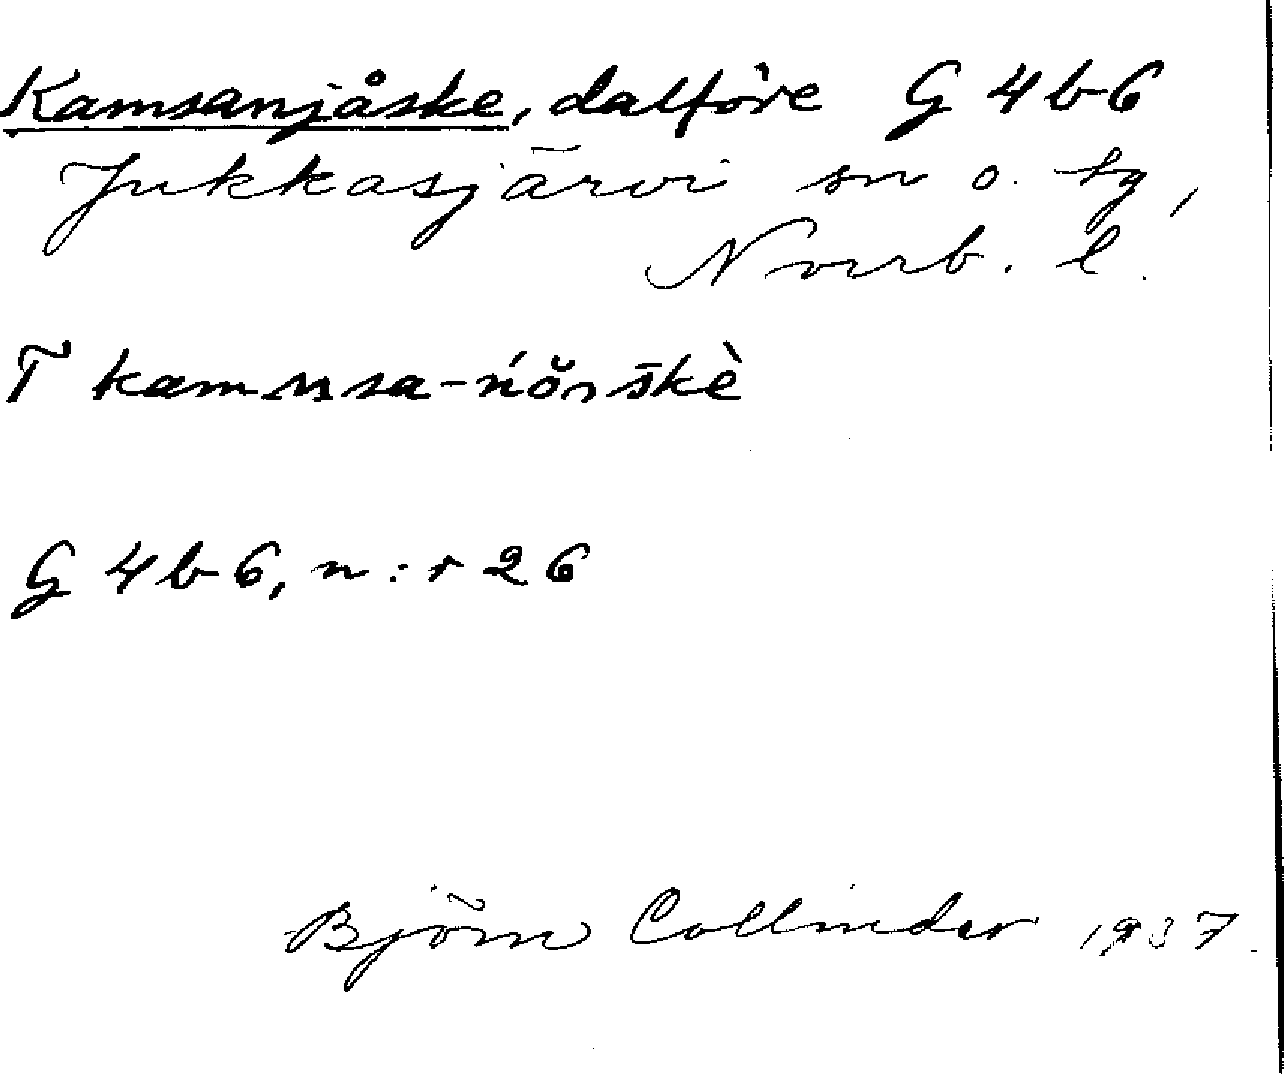 Kamsanjåske, dalföre G 4 b 6
Jukkasjärvi sn o. tg,
Norrb. l.
T
G 4 b 6, n:r 26
Björn Collinder 1937.